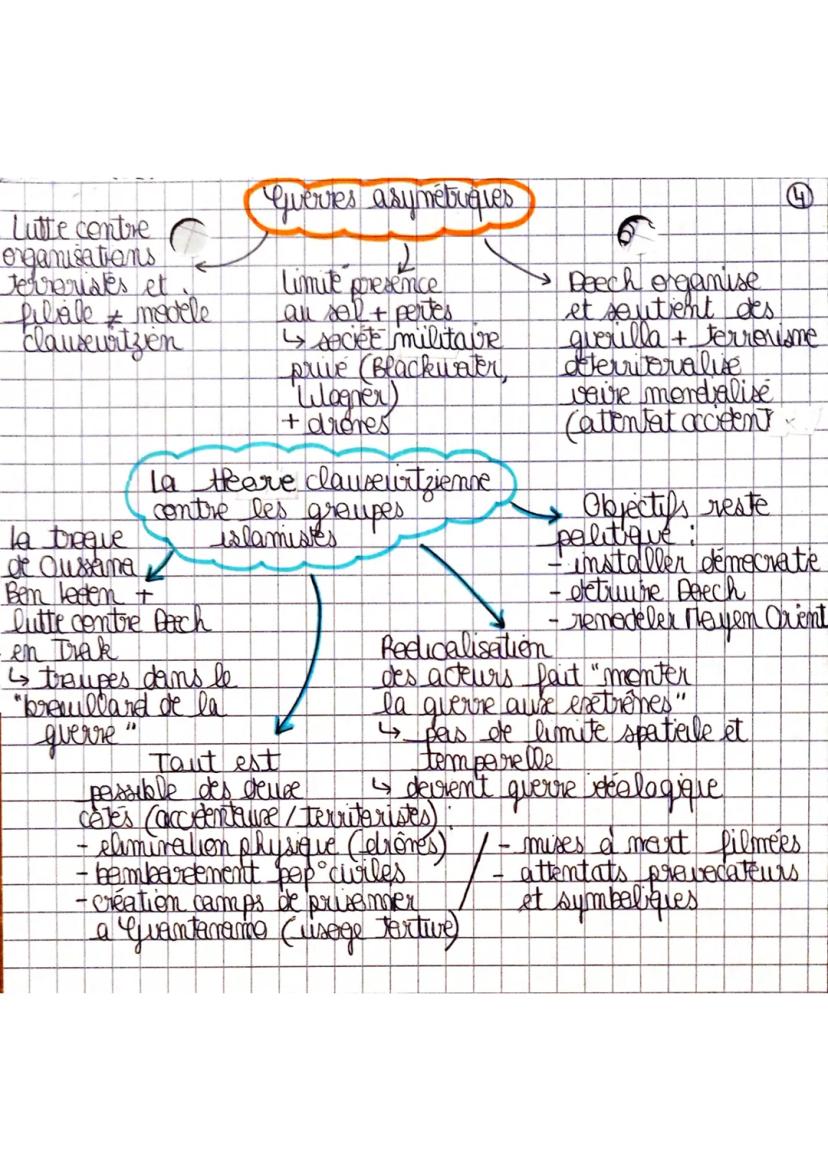 ④
Guerres asymétriques
Lutte contre
organisations
terroristes et
filiale ≠ modèle
clausewitzien
Limite présence
au sol + pertes
↳ société militaire
privé (Blackwater,
Wagner)
+ drônes
Daech organise
et soutient des
guerilla + terrorisme
déterritoralisé
voire mondialisé
(attentat occident
La théorie clausewitzienne
contre les groupes
islamistes
la traque
de Ousama
Ben laden +
lutte contre Daech
en Irak
↳ troupes dans le
"brouillard de la
guerre"
Tout est
possible des deux
côtés (occidentaux / territoristes) :
- elimination physique (drônes)
- bombardement pop° civiles
- création camps de prisonnier
a Guantanamo (usage torture)
- mises à mort filmées
- attentats provocateurs
et symboliques
Radicalisation
des acteurs fait "monter
la guerre aux extrêmes"
↳ pas de limite spatiale et
temporelle
↳ devient guerre idéologique
Objectifs reste
politique :
- installer démocratie
- détruire Daech
- remodeler Moyen Orient